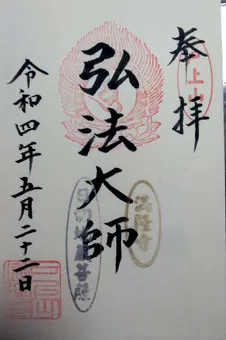 奉拝
上山
弘法大師
令和四年五月二十二日